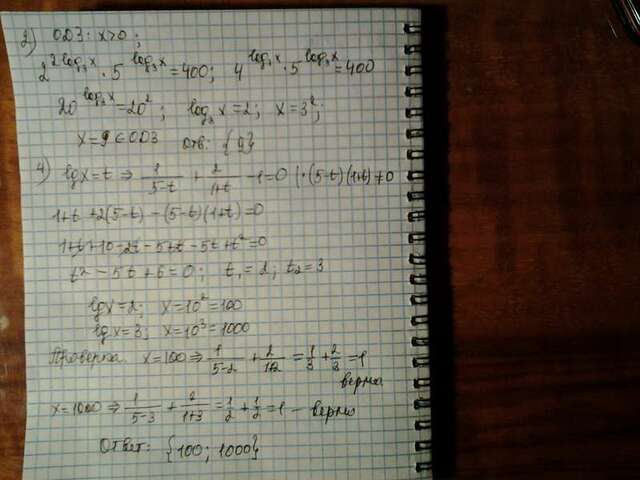 2) ОДЗ: x>0;
2^{2log₃x} · 5^{log₃x} = 400; 4^{log₃x} · 5^{log₃x} = 400
20^{log₃x} = 20²; log₃x = 2; x = 3²;
x = 9 ∈ ОДЗ Отв: {9}
4) lgx = t ⇒ 1/(5-t) + 2/(1+t) - 1 = 0 | · (5-t)(1+t) ≠ 0
1+t+2(5-t) - (5-t)(1+t) = 0
1+t+10-2t-5+t-5t+t² = 0
t² - 5t + 6 = 0; t₁ = 2; t₂ = 3
lgx = 2; x = 10² = 100
lgx = 3; x = 10³ = 1000
Проверка x = 100 ⇒ 1/(5-2) + 2/(1+2) = 1/3 + 2/3 = 1
верно
x = 1000 ⇒ 1/(5-3) + 2/(1+3) = 1/2 + 1/2 = 1 — верно
Ответ: {100; 1000}